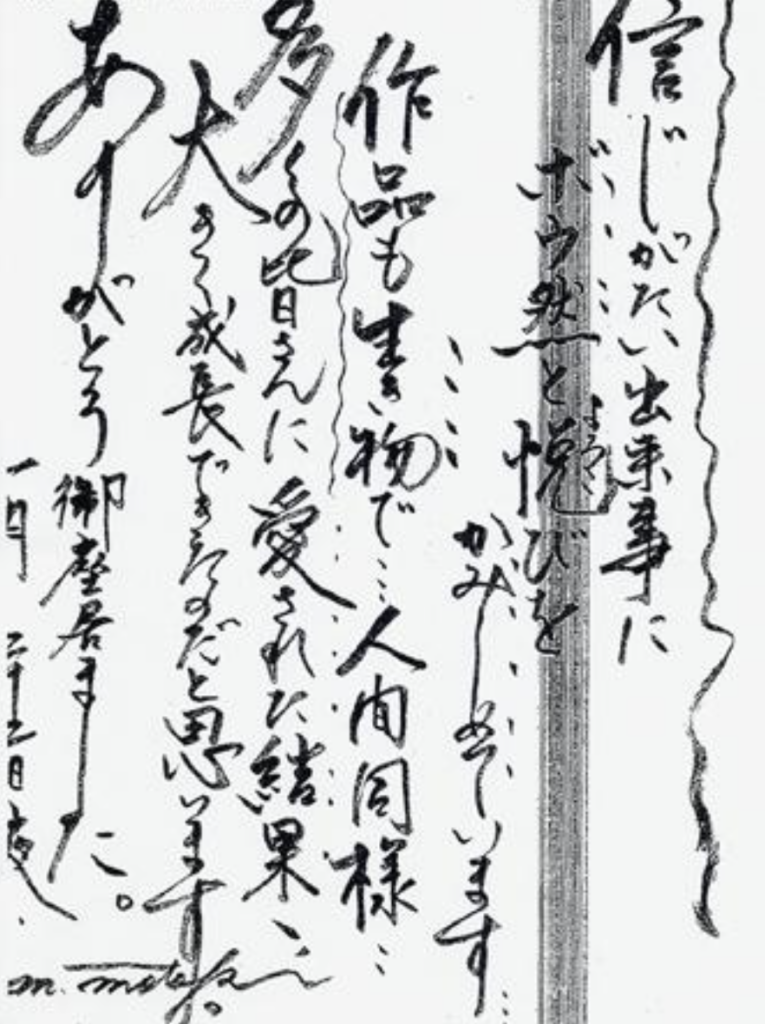 信じがたい出来事に
ボウ然と悦びを
よろこ
かみしめています…
作品も生き物で…人間同様…
多くの皆さんに愛された結果…
大きく成長できたのだと思います。
ありがとう御座居ました。
一月二十二日